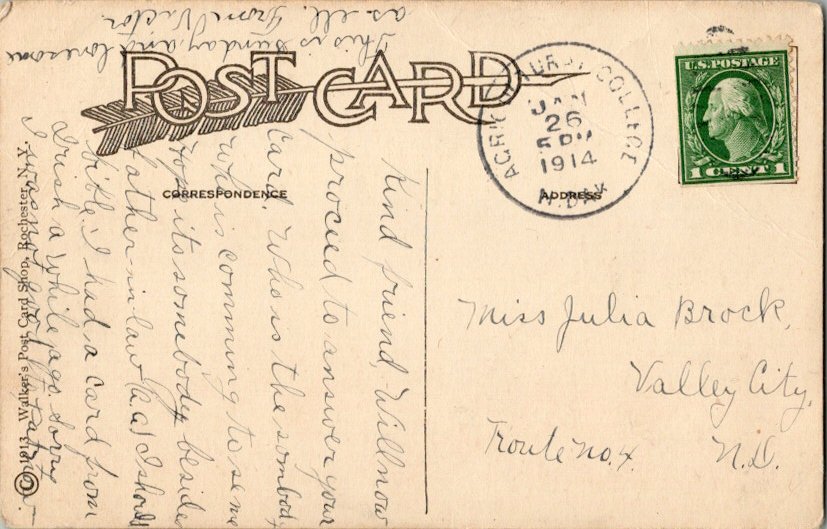 POST CARD
CORRESPONDENCE
ADDRESS
AGRICULTURAL COLLEGE
JAN
26
5 PM
1914
N. DAK
U.S. POSTAGE
1 CENT 1
Miss Julia Brock,
Valley City,
Route no. 4. N.D.
Kind friend,- Will now
proceed to answer your
card. Who is the sombody
who is comming to see me
hope its somebody besides
father-in-law (Ha Ha) I should
bible I had a card from
Irish a while ago. Sorry
I was not good
This is Sunday and lonesome
as ell. From Victor.
© 1913, Walker's Post Card Shop, Rochester, N.Y.